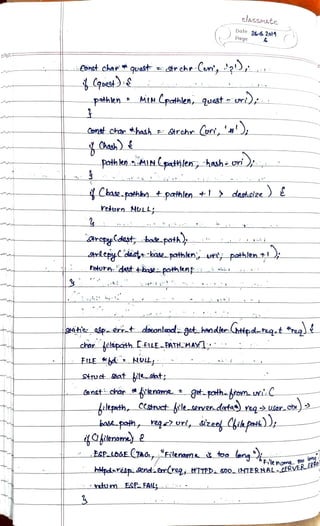 classmate
Date 26-6-2019
Page 6
const char * quest = strchr (uri, '?');
if (quest) {
pathlen = MIN (pathlen, quest - uri);
}
const char *hash = strchr (uri, '#');
if (hash) {
pathlen = MIN (pathlen, hash - uri);
}
if (base_pathlen + pathlen + 1 > destsize) {
return NULL;
}
strcpy (dest, base_path);
strlcpy (dest + base_pathlen, uri, pathlen + 1);
return dest + base_pathlen;
}
static esp_err_t download_get_handler (httpd_req_t *req) {
char filepath [FILE_PATH_MAX];
FILE *fd = NULL;
struct stat file_stat;
const char *filename = get_path_from_uri (
filepath, ((struct file_server_data*) req -> user_ctx) ->
base_path, req -> uri, sizeof (filepath));
if (!filename) {
ESP_LOGE (TAG, "Filename is too long");
httpd_resp_send_err (req, HTTPD_500_INTERNAL_SERVER_ERROR
"Filename too long");
return ESP_FAIL;
}